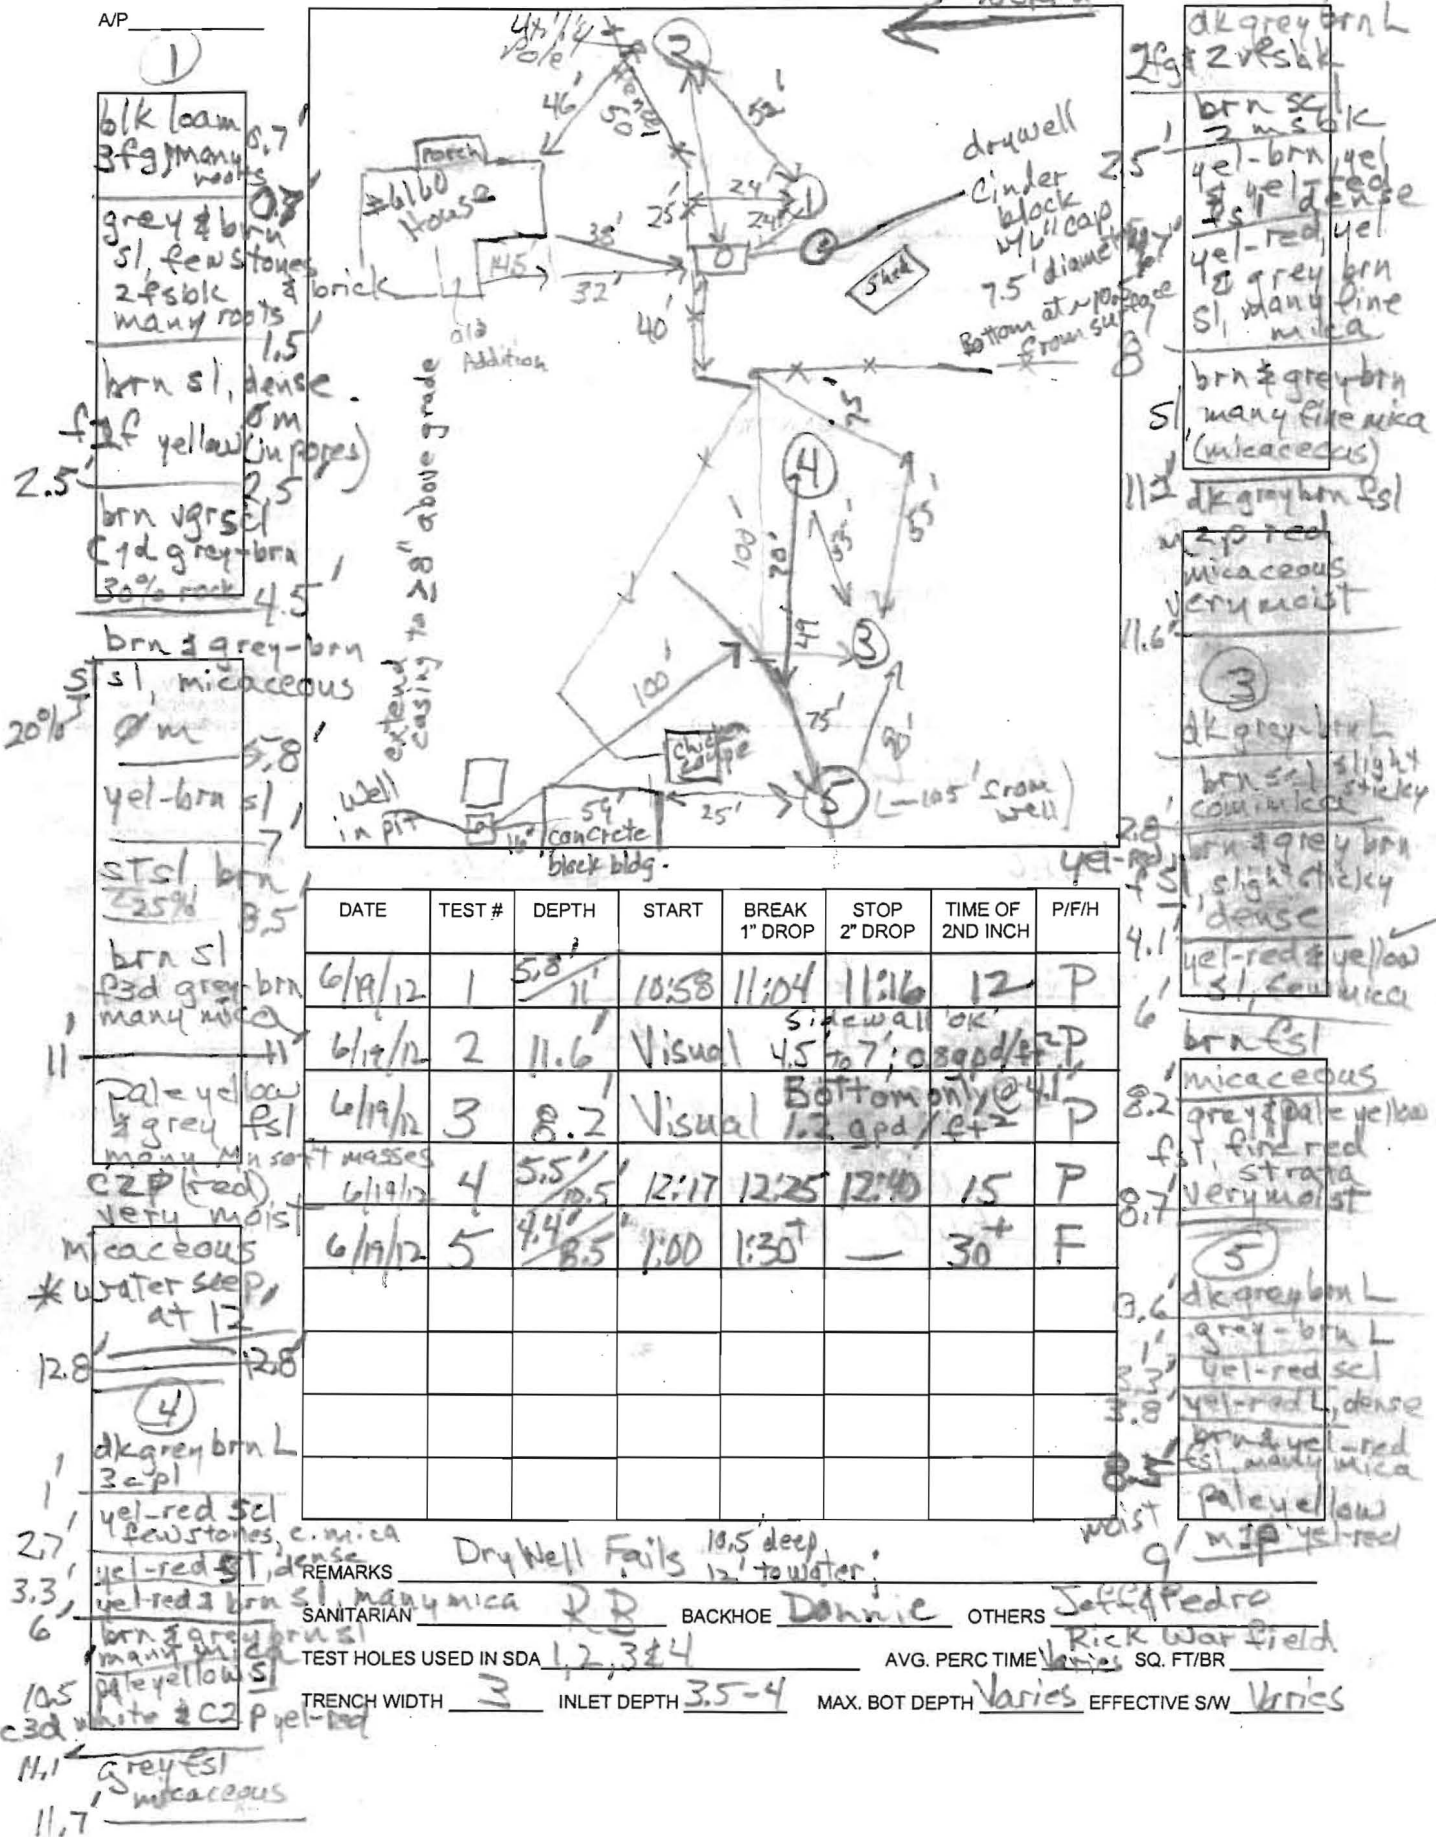 A/P
1
blk loam
3fg, many
roots
0.7'
0.8'
grey & brn
sl, few stones
2fsbk & brick
many roots
1.5'
brn sl, dense
0m
f1f yellow (in pores)
2.5'
2.5'
brn vgrscl
c1d grey-brn
30% rock
4.5'
brn & grey-brn
st sl, micaceous
20%
0m
5.8'
yel-brn sl
7'
st sl, brn
25%
8.5'
brn sl
f3d grey-brn
many mica
11'
11'
pale yellow
& grey fsl
many Mn soft masses
c2p (red)
very moist
micaceous
* water seep,
at 12
12.8'
12.8'
4
dk grey brn L
3cpl
1'
yel-red scl
few stones, c. mica
2.7'
yel-red sl, dense
3.3'
yel-red & brn sl, many mica
6'
brn & grey brn sl
many mica
pale yellow sl
10.5
c3d white & c2p yel-red
11.1'
grey fsl
micaceous
11.7'
Pole
2
46'
fence
50'
52'
Porch
House
25'
24'
1
24'
38'
0
145
32'
40'
old
Addition
drywell
Cinder
block
w/6" cap
7.5' diameter
Bottom at ~10.5'
from surface
Shed
extend
casing to ≥8" above grade
75'
4
100'
70'
53'
55'
49
3
100'
75'
90'
chicken
coupe
Well
in pit
16'
59'
concrete
block bldg.
25'
5
(~105' from
well)
dk grey brn L
2fg & 2vfsbk
1'
brn scl
2msbk
2.5'
yel-brn, yel
& yel-red
fsl dense
yel-red, yel
& grey brn
sl, many fine
mica
8'
brn & grey-brn
sl, many fine mica
(micaceous)
dk grey brn fsl
m2p red
micaceous
very moist
11.6'
3
dk grey-brn L
brn scl slight
sticky
com mica
2.8'
yel-red
brn & grey brn
fsl, slight sticky
dense
4.1'
yel-red & yellow
sl, few mica
6'
brn fsl
micaceous
8.2'
grey & pale yellow
fsl, fine red
strata
very moist
8.7'
5
0.6'
dk grey brn L
grey-brn L
1'
yel-red scl
3.3'
yel-red L, dense
3.8'
brn & yel-red
fsl, many mica
8.5'
pale yellow
moist
m1p yel-red
9'
DATE TEST # DEPTH START BREAK 1" DROP STOP 2" DROP TIME OF 2ND INCH P/F/H
6/19/12 1 5.8'/11' 10:58 11:04 11:16 12 P
6/19/12 2 11.6' Visual sidewall 'ok' 4.5' to 7'; 0.8gpd/ft² P
6/19/12 3 8.2' Visual Bottom only @ 4.1' 1.2 gpd/ft² P
6/19/12 4 5.5'/10.5' 12:17 12:25 12:40 15 P
6/19/12 5 4.4'/8.5' 1:00 1:30+ — 30+ F
REMARKS Dry Well Fails 10.5' deep
12' to water
SANITARIAN RB BACKHOE Donnie OTHERS Jeff & Pedro
Rick Warfield
TEST HOLES USED IN SDA 1, 2, 3 & 4 AVG. PERC TIME Varies SQ. FT/BR
TRENCH WIDTH 3 INLET DEPTH 3.5-4 MAX. BOT DEPTH Varies EFFECTIVE S/W Varies